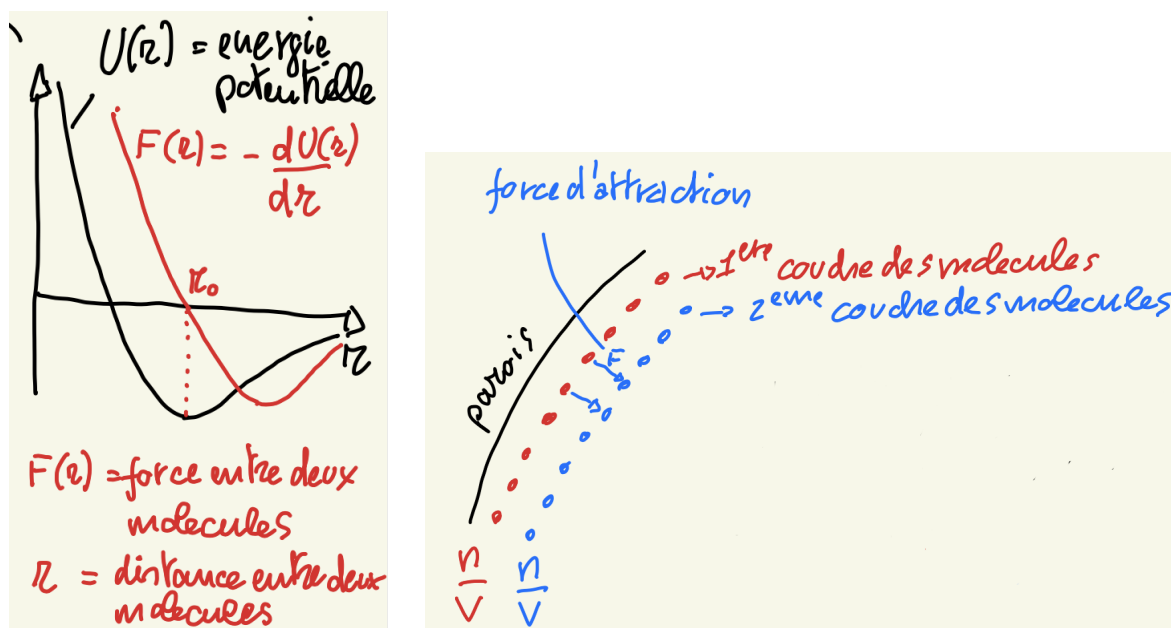 U(r) = energie
potentielle
F(r) = - dU(r)
dr
r₀
r
F(r) = force entre deux
molecules
r = distance entre deux
molecules
force d'attraction
→ 1ere couche des molecules
→ 2eme couche des molecules
F
parois
n
V
n
V